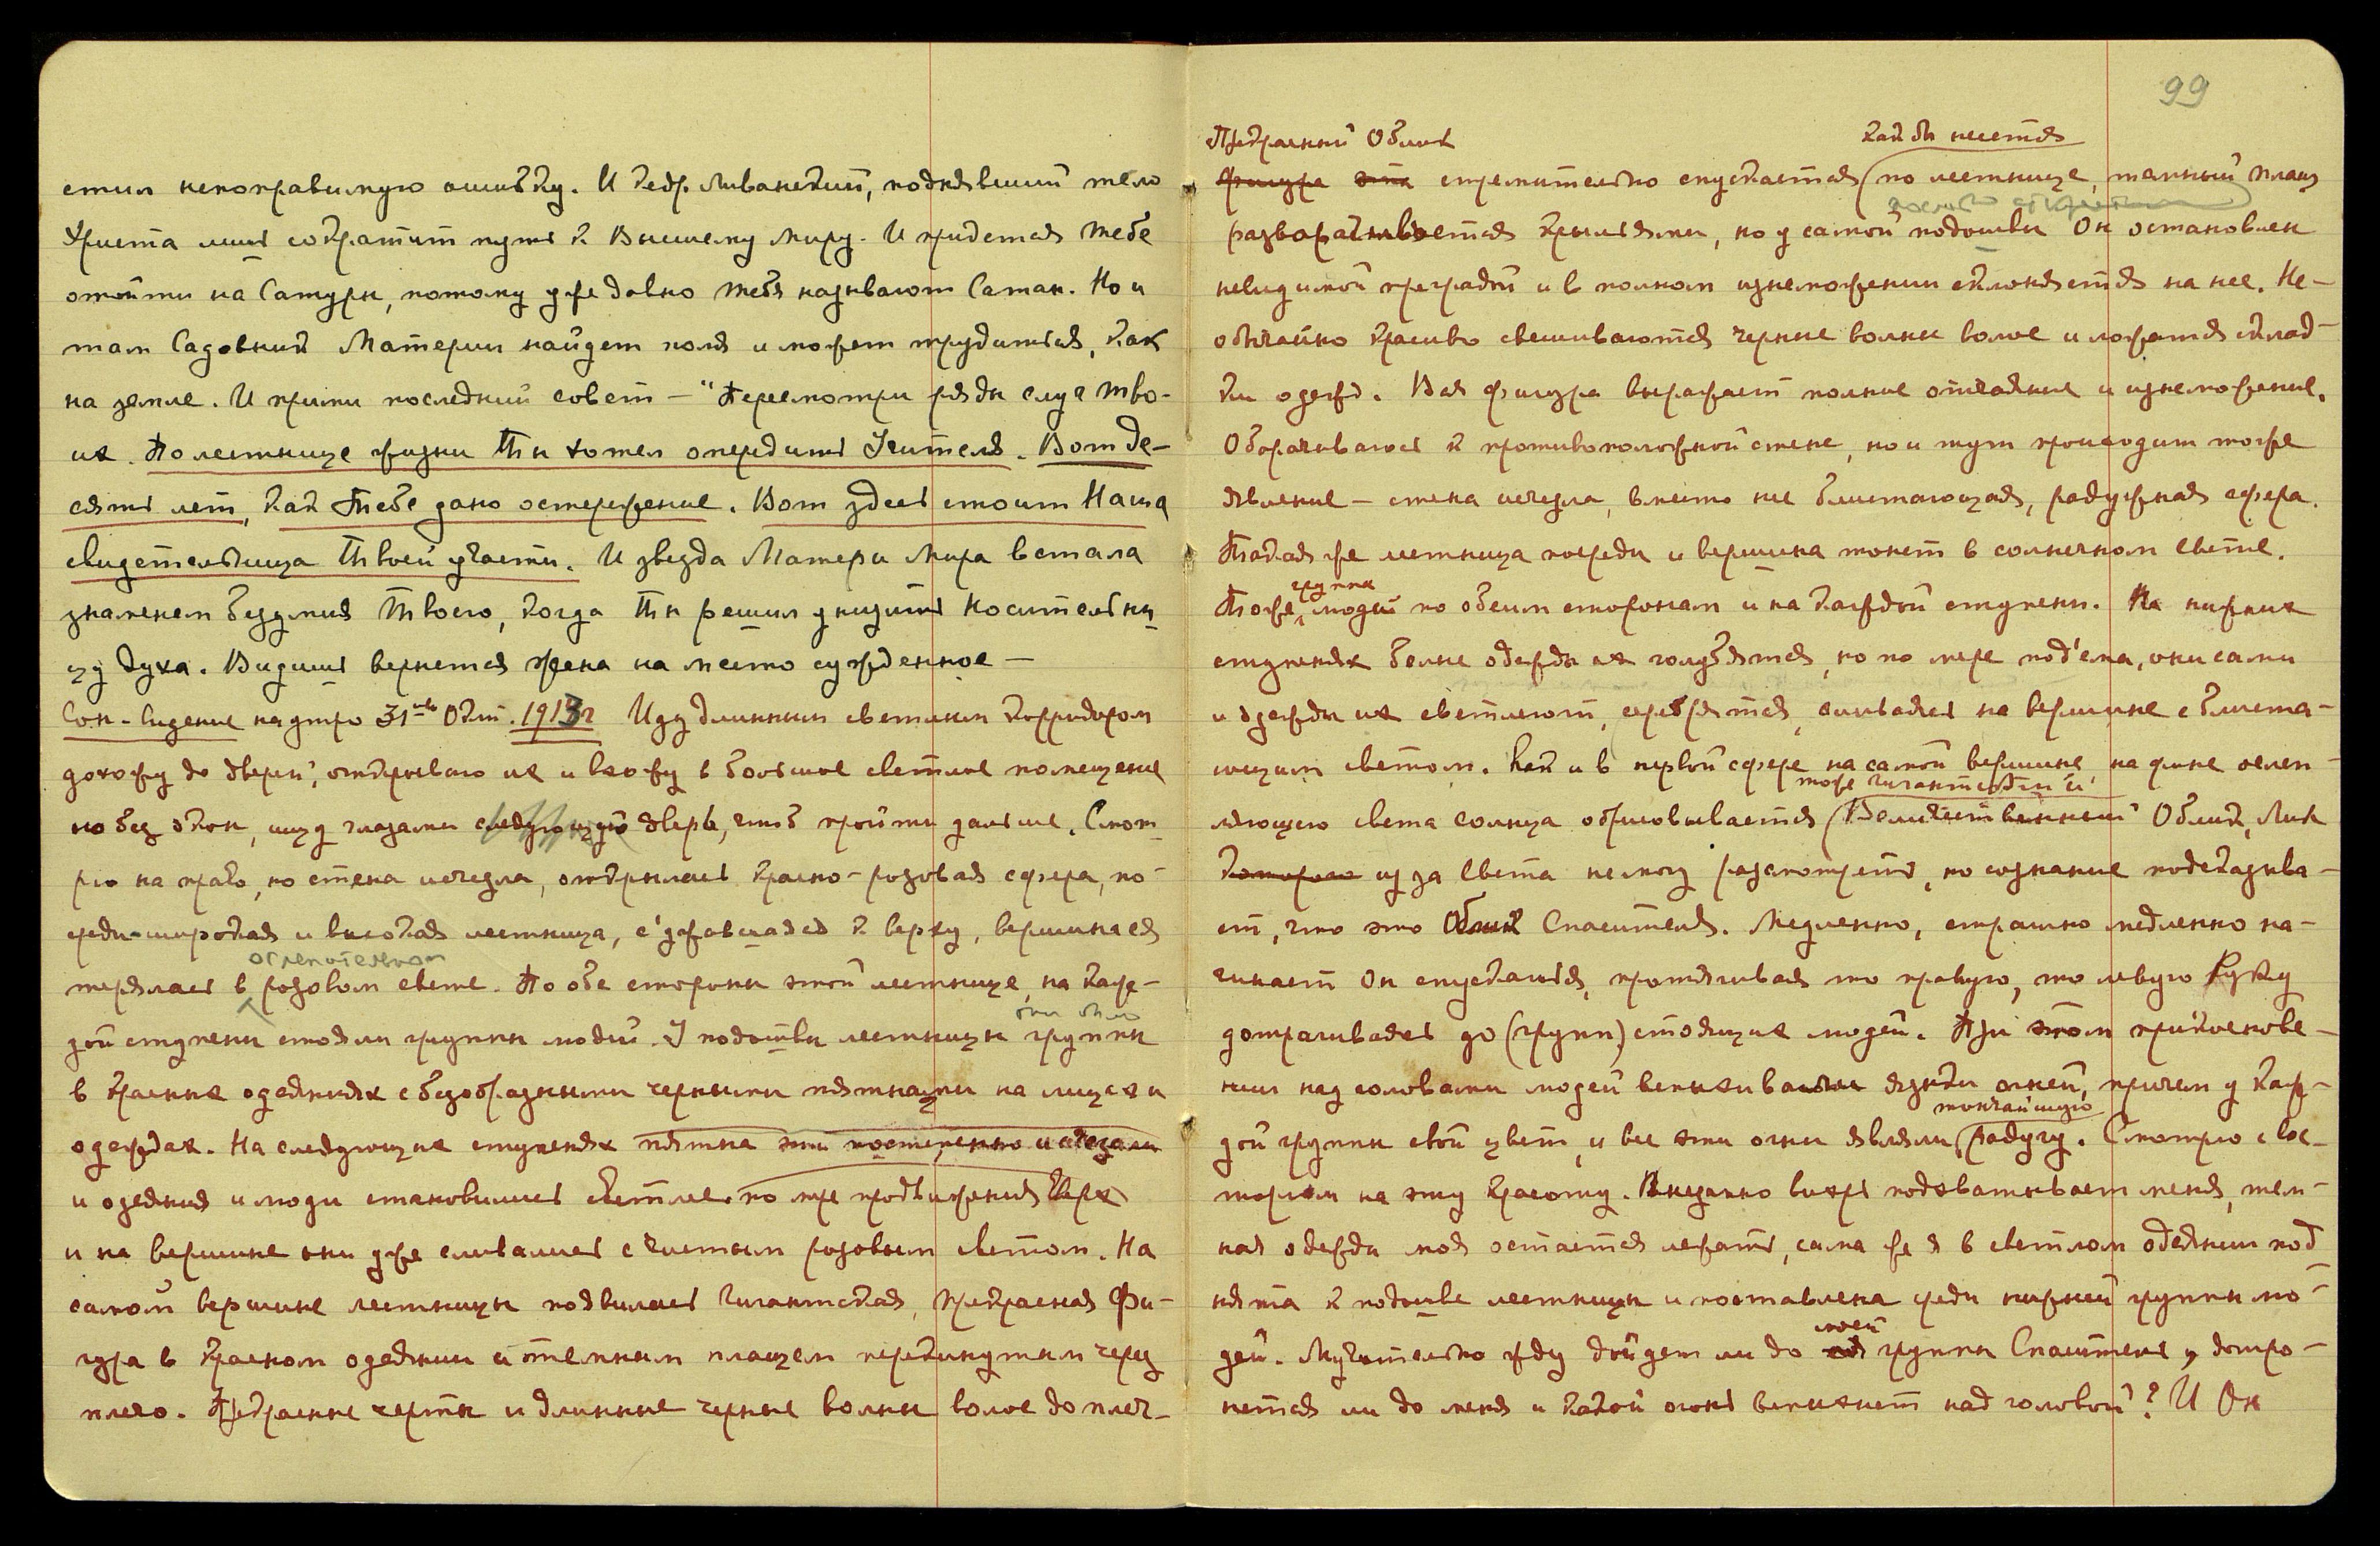 стил непоправимую ошибку. И кедр Ливанский, поднявший тело
Христа лишь сократит путь к Высшему Миру. И придется тебе
отойти на Сатурн, потому уже давно тебя называют Сатан. Но и
там Садовник Материи найдет поля и может трудиться, как
на земле. И прими последний совет — "Пересмотри ряды слуг тво-
их. По лестнице жизни Ты хотел опередить Учителя. Вот де-
сять лет, как Тебе дано остережение. Вот здесь стоит Наша
свидетельница Твоей участи. И звезда Матери Мира встала
знаменем безумия Твоего, когда Ты решил унизить Носительни-
цу Духа. Видишь вернется жена на место сужденное —
Сон-видение на утро 31го Окт. 1913г Иду длинным светлым корридором
дохожу до дверей, открываю их и вхожу в большое светлое помещение
но без окон, ищу глазами следующую дверь, чтоб пройти дальше. Смот-
рю на право, но стена исчезла, открылась красно-розовая сфера, по-
среди широкая и высокая лестница, с'уживавшаяся к верху, вершина ея
терялась в розовом свете. По обе стороны этой лестницы, на каж-
ослепительном
дой ступени стояли группы людей. У подошвы лестницы группы
они были
в красных одеяниях с безобразными черными пятнами на лицах и
одеждах. На следующих ступенях пятна эти постепенно исчезали
и одеяния и люди становились светлее по мере продвижения вверх
и на вершине они уже сливались с чистым розовым светом. На
самой вершине лестницы появилась гигантская, прекрасная Фи-
гура в красном одеянии и темным плащем перекинутым через
плечо. Прекрасные черты и длинные черные волны волос до плеч-
99
Прекрасный Облик
как бы несется
Фигура эта стремительно спускается по лестнице, темный плащ
разворачивается крыльями, но у самой подошвы Он остановлен
невидимой преградой и в полном изнеможении склоняется на нее. Не-
обычайно красиво свешиваются черные волны волос и ложатся склад-
ки одежд. Вся фигура выражает полное отчаяние и изнеможение.
Оборачиваюсь к противоположной стене, но и тут происходит тоже
явление — стена исчезла, вместо нее блистающая, радужная сфера.
Такая же лестница посреди и вершина тонет в солнечном свете.
группы
Тоже людей по обеим сторонам и на каждой ступени. На нижних
ступенях белые одежды их голубятся, но по мере под'ема, они сами
и одежды их светлеют, серебрятся, сливаясь на вершине с блиста-
ющим светом. Как и в первой сфере на самой вершине, на фоне ослеп-
тоже гигантский
ляющего света солнца обрисовывается Величественный Облик, Лик
Которого из за света не могу разсмотреть, но сознание подсказыва-
ет, что это Облик Спасителя. Медленно, страшно медленно на-
чинает Он спускаться, протягивая то правую, то левую Руку
дотрагиваясь до (групп) стоящих людей. При этом прикоснове-
нии над головами людей вспыхивали языки огней, причем у каж-
тончайшую
дой группы свой цвет, и все эти огни являли радугу. Смотрю с вос-
торгом на эту красоту. Внезапно вихрь подхватывает меня, тем-
ная одежда моя остается лежать, сама же я в светлом одеянии под-
нята к подошве лестницы и поставлена среди нижней группы лю-
моей
дей. Мучительно жду дойдет ли до группы Спаситель, дотро-
нется ли до меня и какой огонь вспыхнет над головой? И Он